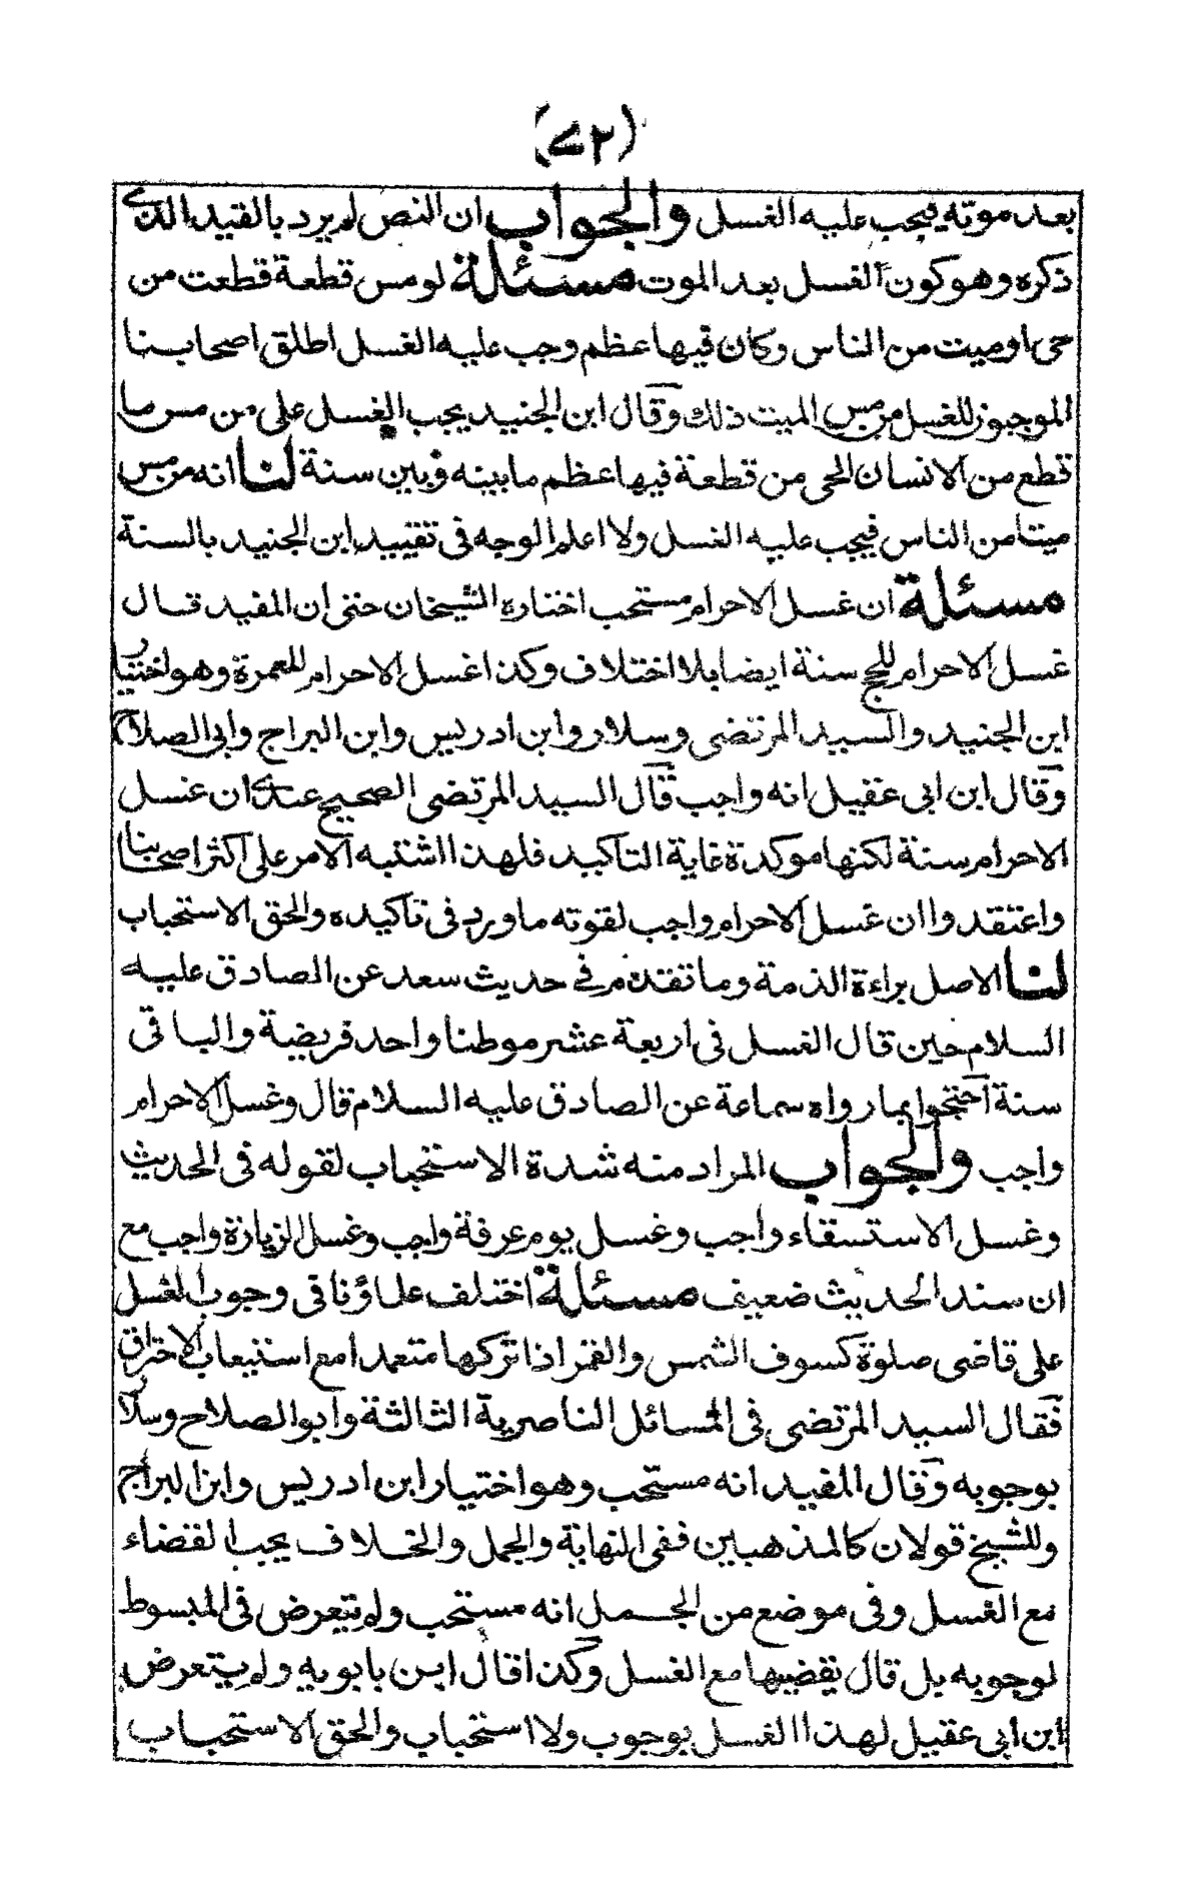 (٧٢)
بعد موته فيجب عليه الغسل والجواب ان النص لم يرد بالقيد الذى
ذكره وهو كون الغسل بعد الموت مسئلة لو مس قطعة قطعت من
حى او ميت من الناس وكان فيها عظم وجب عليه الغسل اطلق اصحابنا
الموجبون للغسل من مس الميت ذلك وقال ابن الجنيد يجب الغسل على من مس ما
قطع من الانسان الحى من قطعة فيها عظم ما بينه وبين سنة لنا انه من مس
ميتا من الناس فيجب عليه الغسل ولا اعلم الوجه فى تقييد ابن الجنيد بالسنة
مسئلة ان غسل الاحرام مستحب اختاره الشيخان حتى ان المفيد قال
غسل الاحرام للحج سنة ايضا بلا اختلاف وكذا غسل الاحرام للعمرة وهو اختيار
ابن الجنيد والسيد المرتضى وسلار وابن ادريس وابن البراج وابى الصلاح
وقال ابن ابى عقيل انه واجب قال السيد المرتضى الصحيح عندى ان غسل
الاحرام سنة لكنها موكدة غاية التاكيد فلهذا اشتبه الامر على اكثر اصحابنا
واعتقدوا ان غسل الاحرام واجب لقوته ما ورد فى تاكيده والحق الاستحباب
لنا الاصل براءة الذمة وما تقدم فى حديث سعد عن الصادق عليه
السلام حين قال الغسل فى اربعة عشر موطنا واحد فريضة والباقى
سنة احتجوا بما رواه سماعة عن الصادق عليه السلام قال وغسل الاحرام
واجب والجواب المراد منه شدة الاستحباب لقوله فى الحديث
وغسل الاستسقاء واجب وغسل يوم عرفة واجب وغسل الزيارة واجب مع
ان سند الحديث ضعيف مسئلة اختلف علماؤنا فى وجوب الغسل
على قاضى صلوة كسوف الشمس والقمر اذا تركها متعمدا مع استيعاب الاحتراق
فقال السيد المرتضى فى المسائل الناصرية الثالثة وابو الصلاح وسلار
بوجوبه وقال المفيد انه مستحب وهو اختيار ابن ادريس وابن البراج
وللشيخ قولان كالمذهبين ففى النهاية والجمل والخلاف يجب القضاء
مع الغسل وفى موضع من الجمل انه مستحب ولم يتعرض فى المبسوط
لوجوبه بل قال يقضيها مع الغسل وكذا قال ابن بابويه ولم يتعرض
ابن ابى عقيل لهذا الغسل بوجوب ولا استحباب والحق الاستحباب